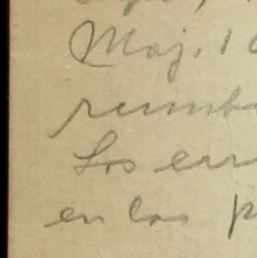 Maj. 1
rumb
Los err
en los p